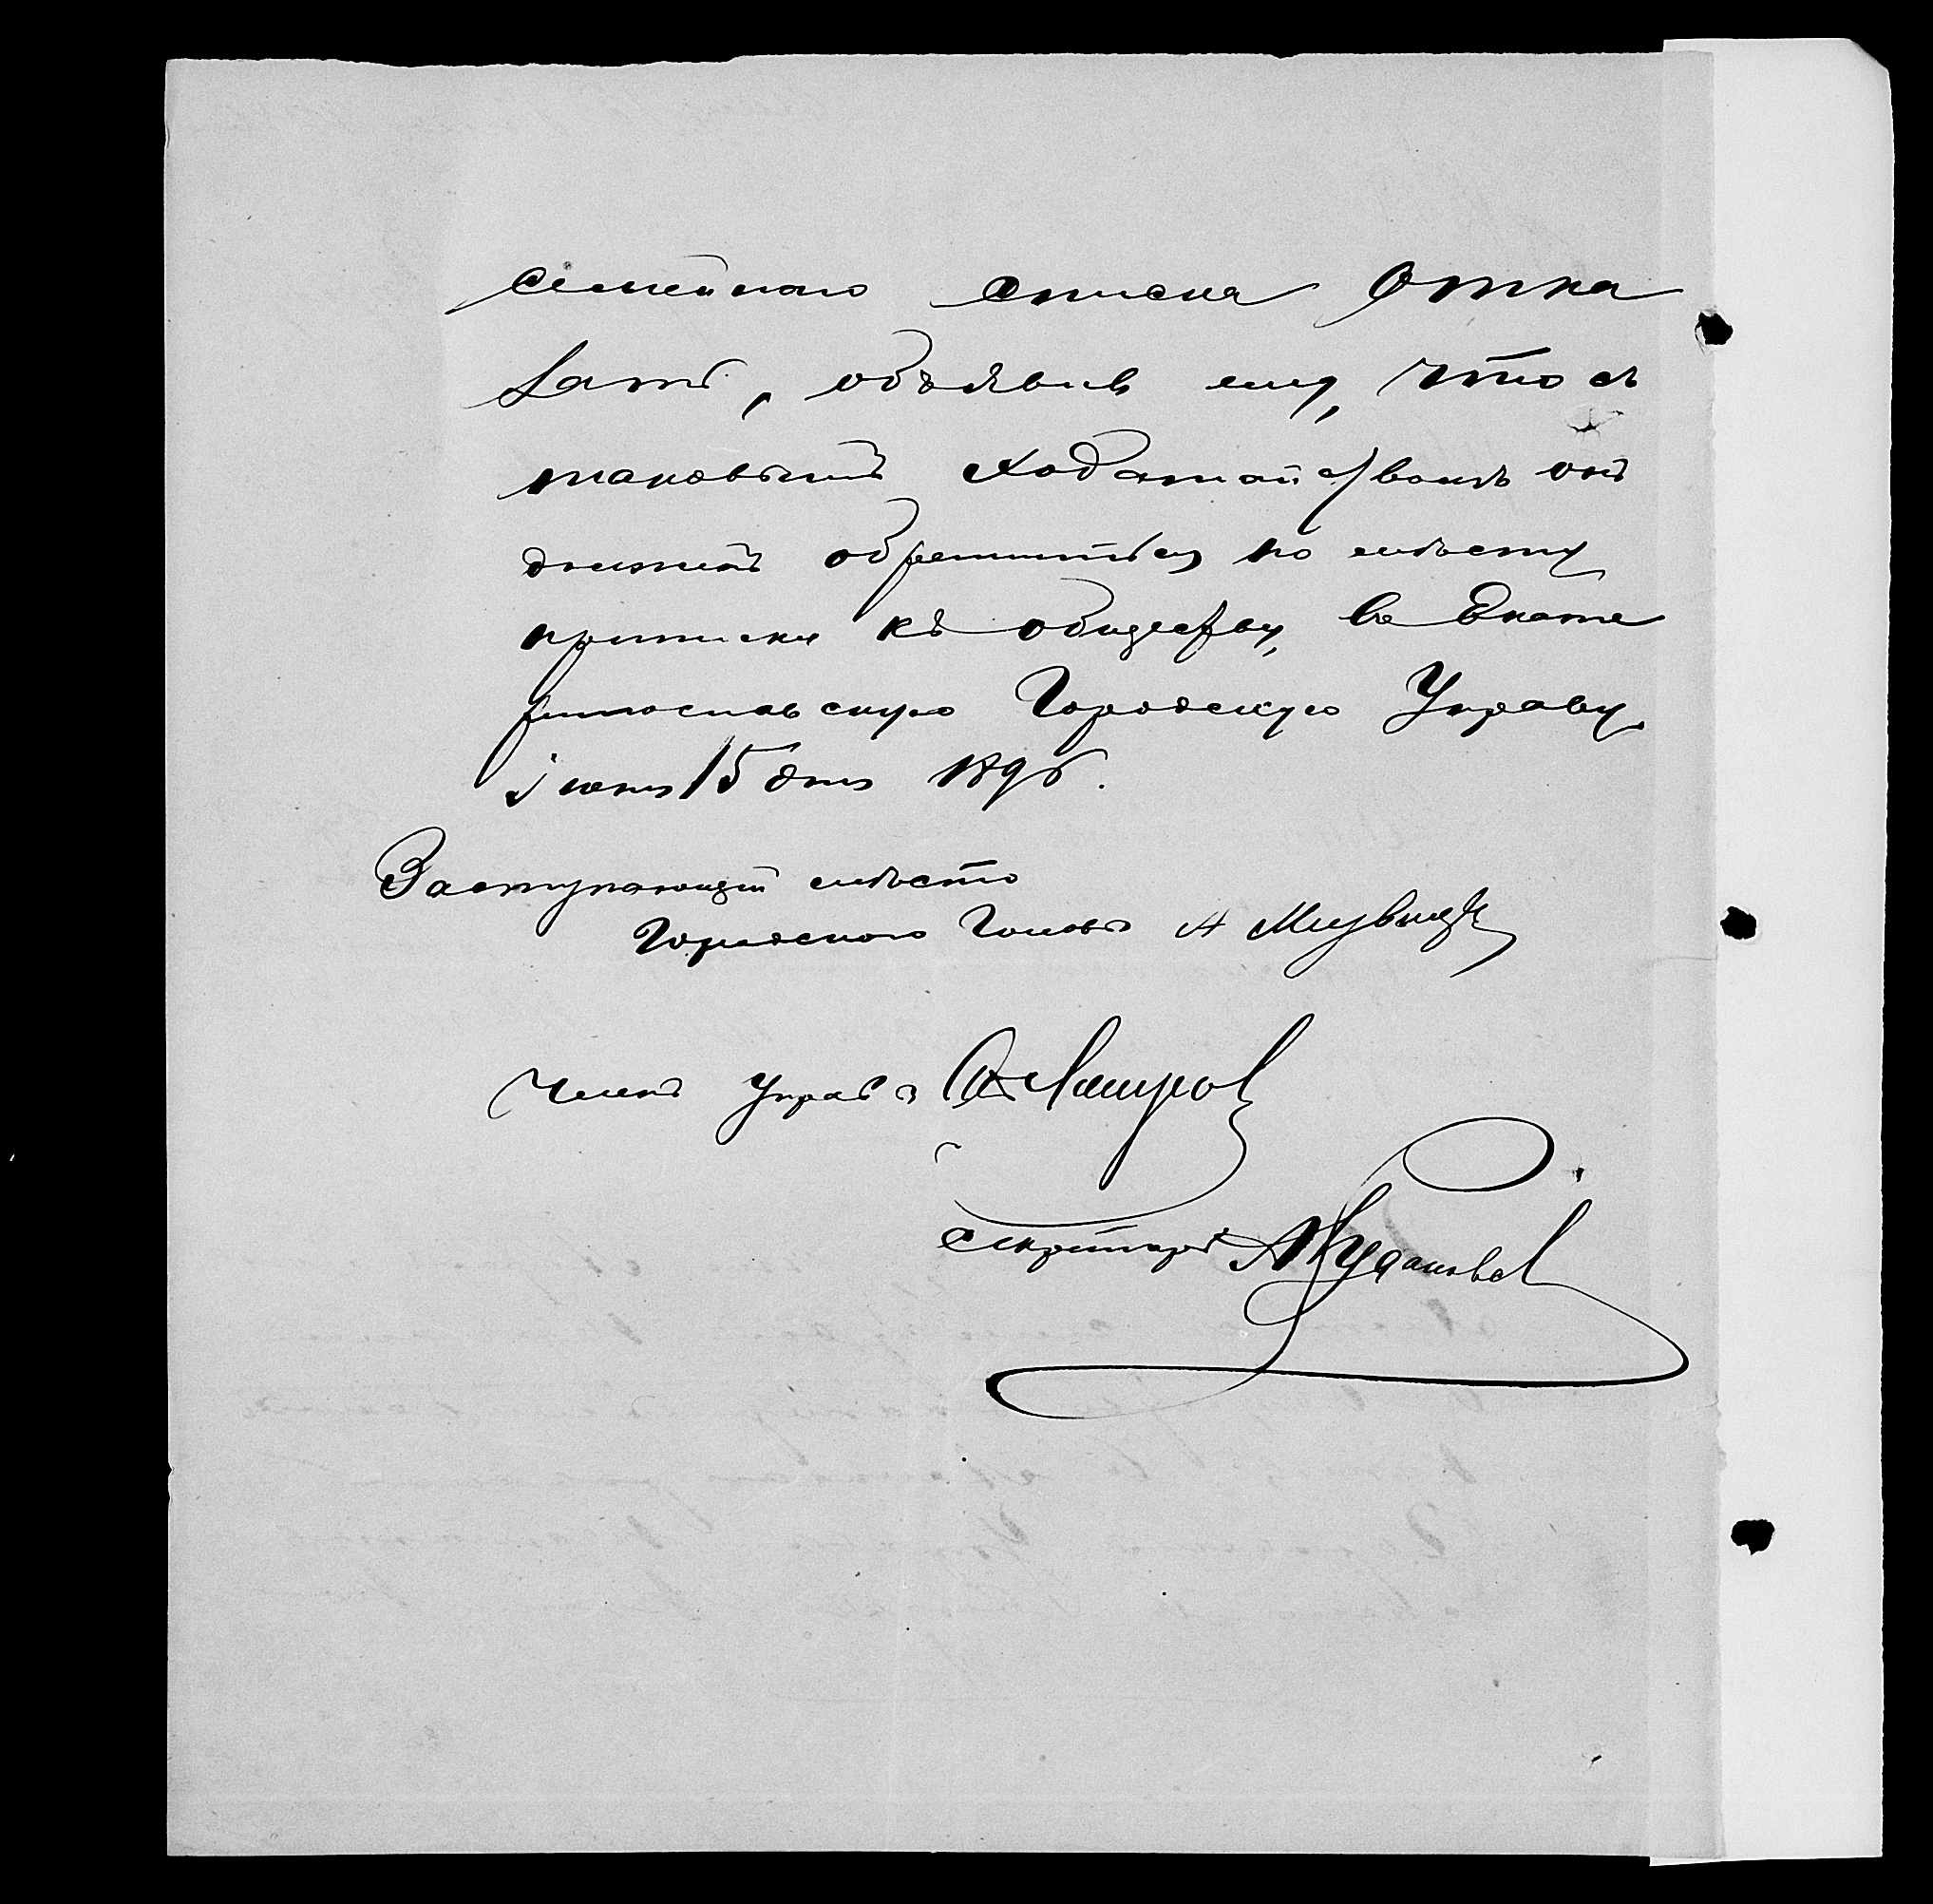 семейнаго списка отка
зать, объявив ему, что съ
таковымъ ходатайствомъ онъ
долженъ обратиться по месту
приписки къ обществу, въ Екате
ринославскую Городскую Управу,
іюня 15 дня 1896.
Заступающій место
Городского Головы А
Членъ Управы
Секретарь А